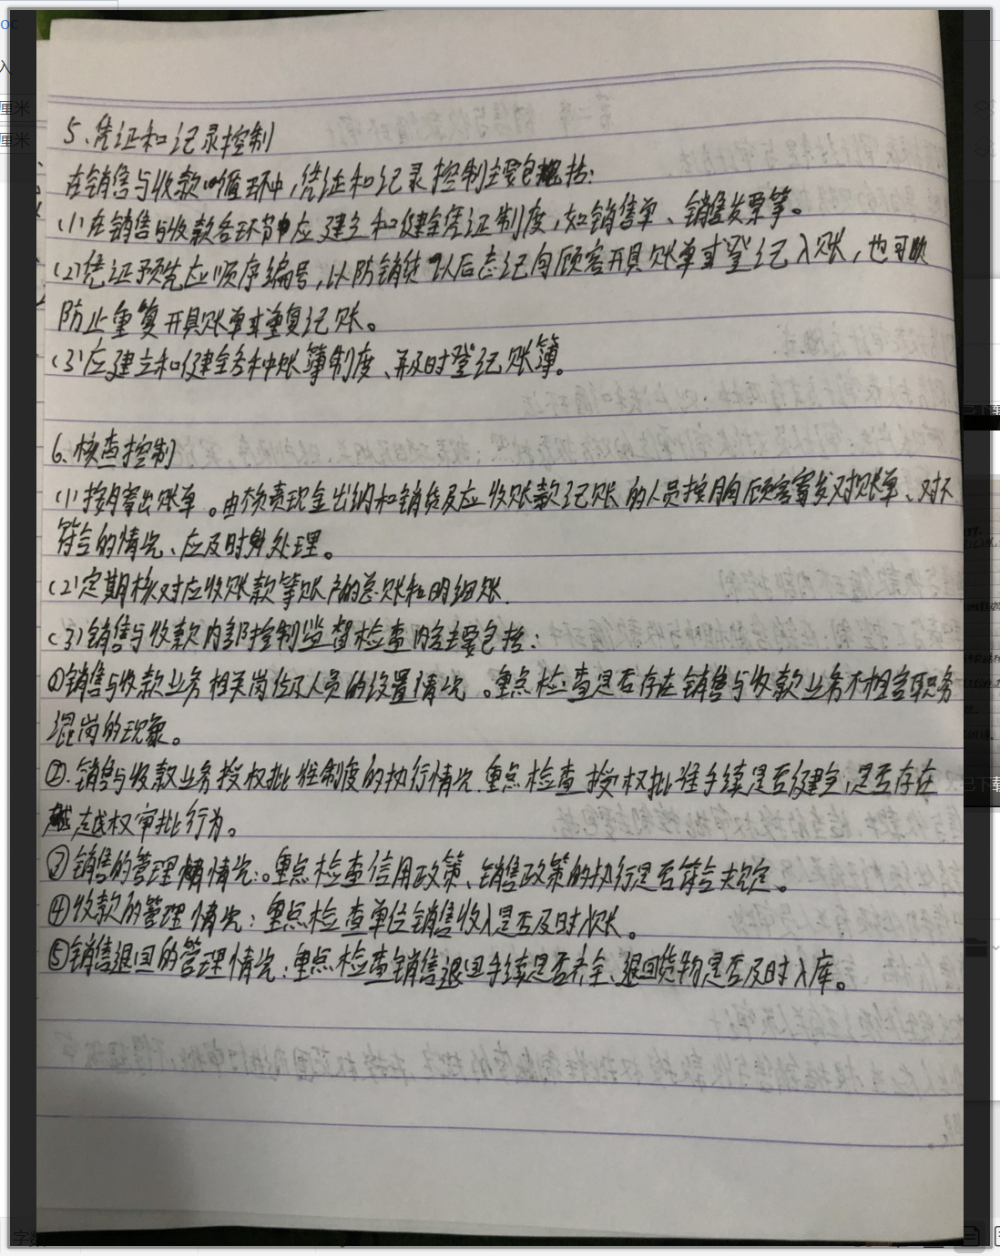 5、凭证和记录控制
在销售与收款的循环中，凭证和记录控制主要包括：
(1)在销售与收款各环节中应建立和健全凭证制度，如销售单、销售发票等。
(2)凭证预先应顺序编号，以防销货以后忘记向顾客开具账单或登记入账，也可以
防止重复开具账单或重复记账。
(3)应建立和健全各种账簿制度、并及时登记账簿。
6、核查控制
(1)按月寄出账单。由不负责现金出纳和销货及应收账款记账的人员按月向顾客寄发对账单、对不
符合的情况、应及时处理。
(2)定期核对应收账款等账户的总账和明细账.
(3)销售与收款内部控制监督检查内容主要包括：
①销售与收款业务相关岗位及人员的设置情况。重点检查是否存在销售与收款业务不相容职务
混岗的现象。
②.销售与收款业务授权批准制度的执行情况.重点检查授权批准手续是否健全，是否存在
越权审批行为。
③销售的管理情况：。重点检查信用政策、销售政策的执行是否符合规定。
④收款的管理情况：重点检查单位销售收入是否及时入账。
⑤销售退回的管理情况：重点检查销售退回手续是否齐全、退回货物是否及时入库。